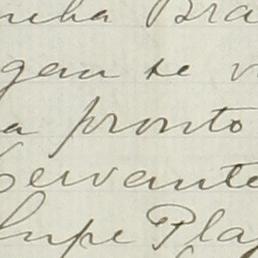 ncha Bra
gan se v
a pronto
Cervante
Lupe Pla